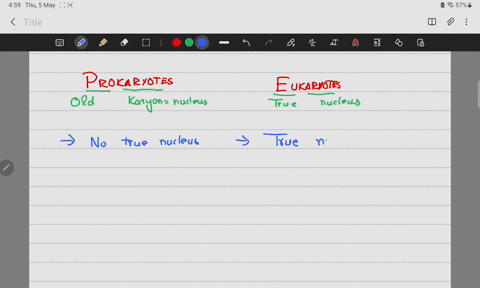 4:59 Thu, 5 May 57%
Title
PROKARYOTES EUKARYOTES
Old Karyon= nucleus True nucleus
→ No true nucleus → True n